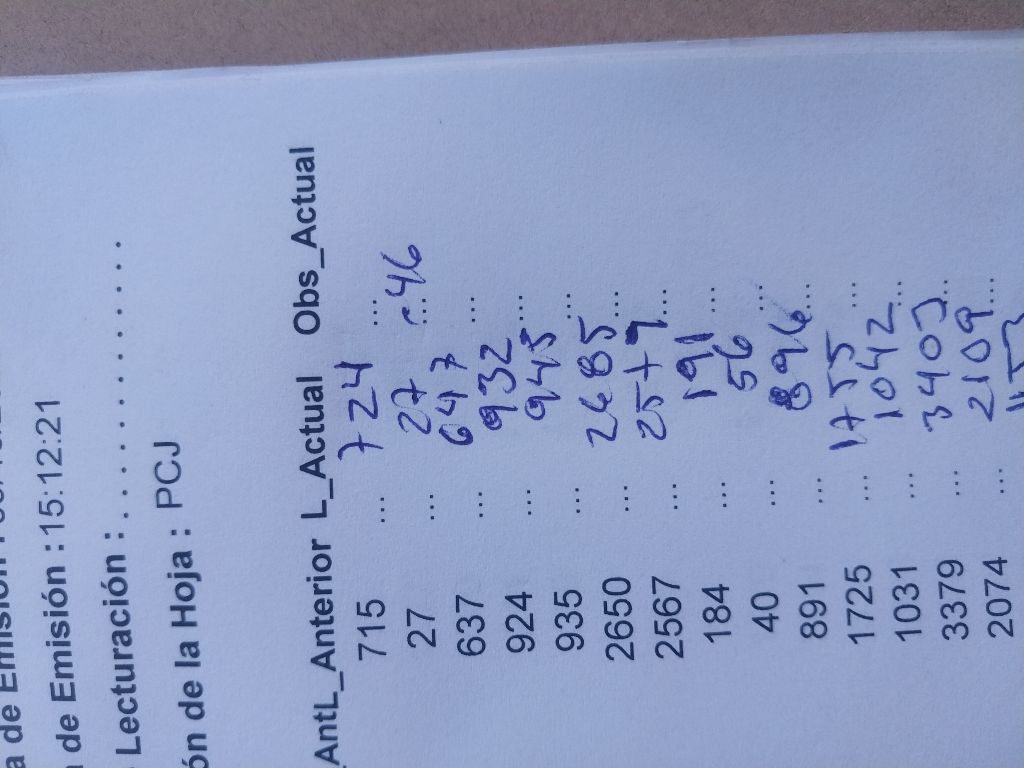 de Emisión : 15:12:21
Lecturación : . . . . . . . . . . . . . . . . .
ón de la Hoja : PCJ
AntL_Anterior L_Actual Obs_Actual
715 ... 724 ...
27 ... 27 ... c46
637 ... 647 ...
924 ... 932 ...
935 ... 945 ...
2650 ... 2685 ...
2567 ... 2577 ...
184 ... 191 ...
40 ... 56 ...
891 ... 896 ...
1725 ... 1755 ...
1031 ... 1042 ...
3379 ... 3403 ...
2074 ... 2109 ...